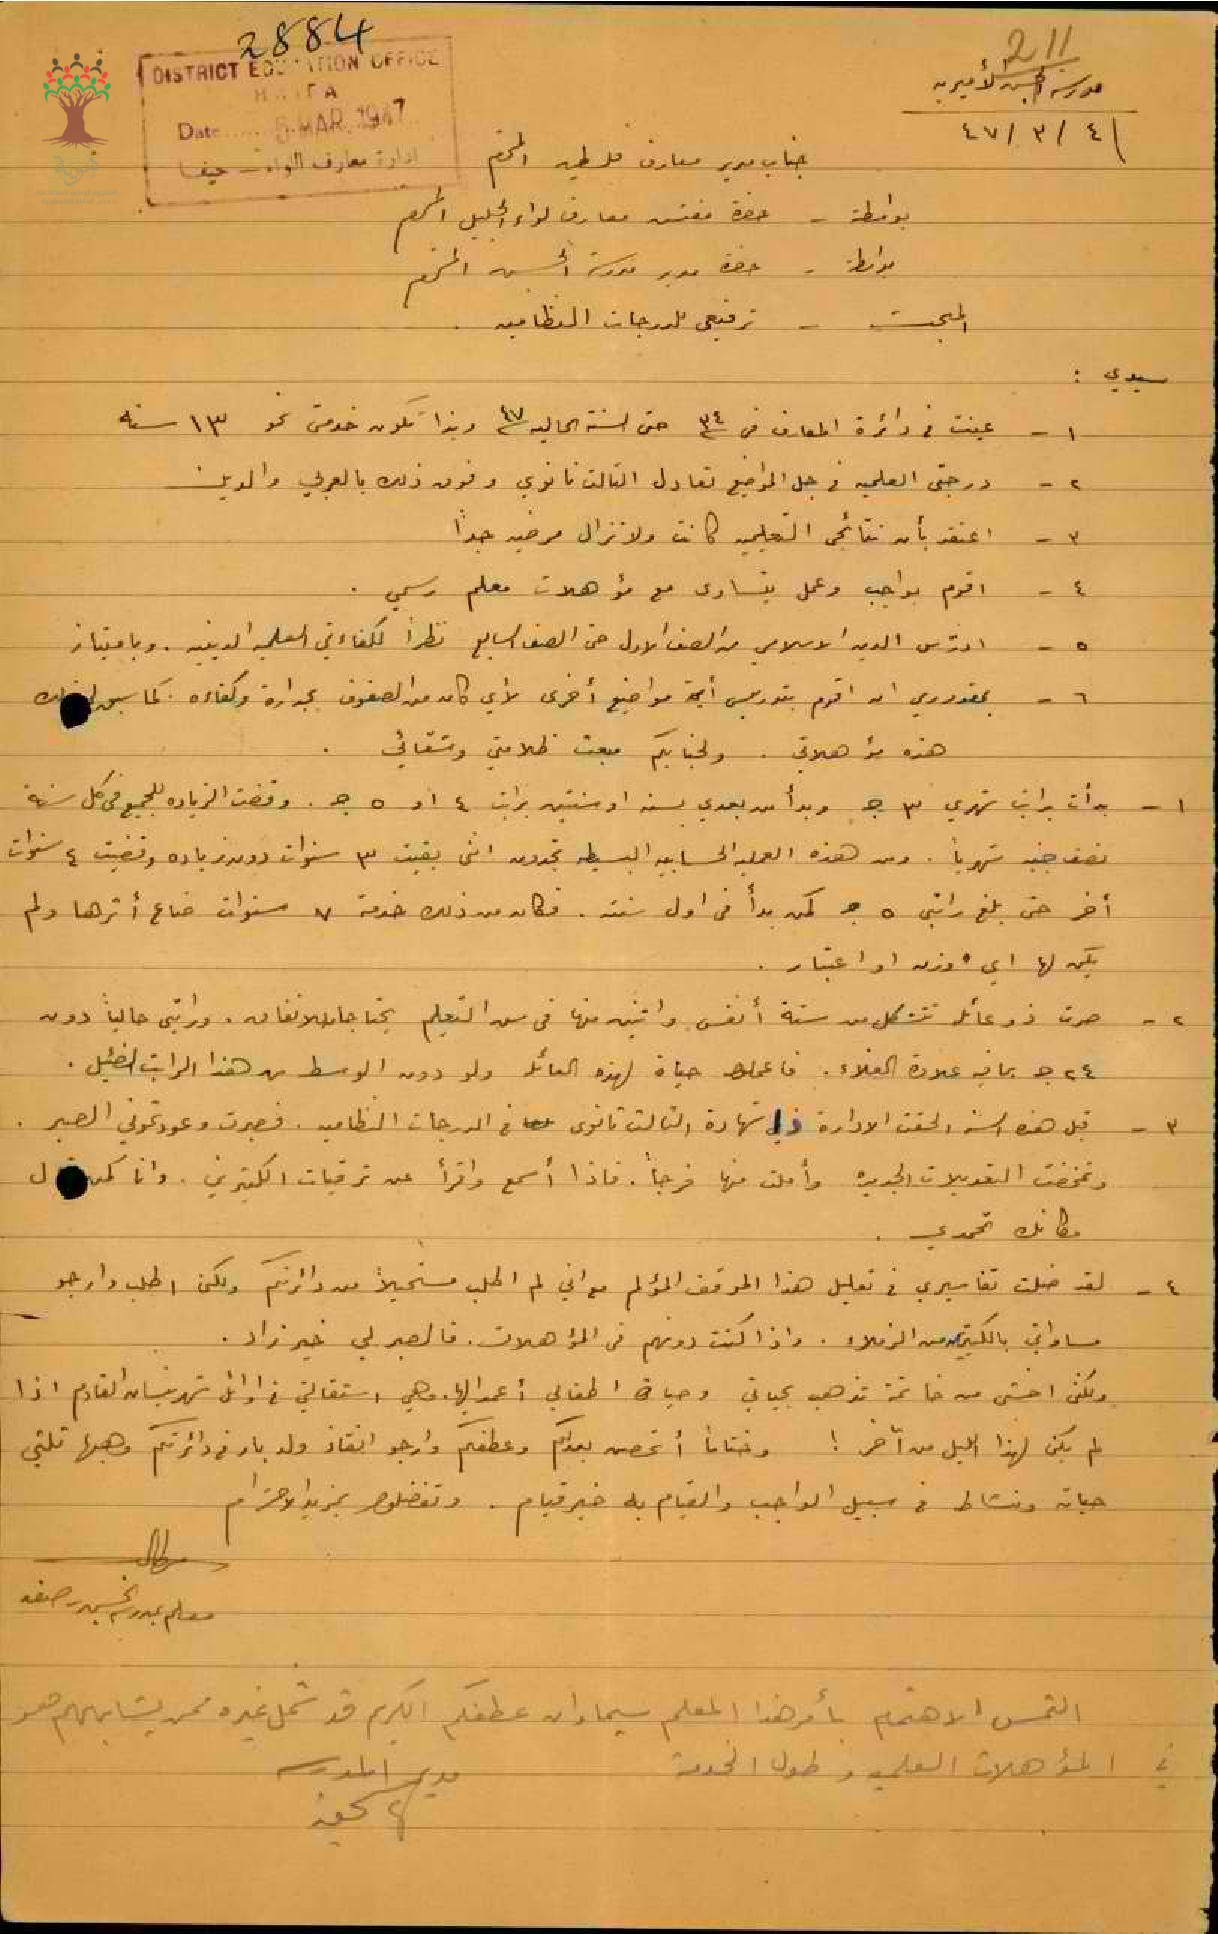 2884
DISTRICT EDUCATION OFFICE
HAIFA
Date 5 MAR 1947
ادارة معارف اللواء - حيفا
211
مدرسة الحسين الأميرية
٤ / ٣ / ٤٧
جناب مدير معارف فلسطين المحترم
بواسطة - حضرة مفتش معارف لواء الجليل المحترم
بواسطة - حضرة مدير مدرسة الحسين المحترم
المبحث - ترفيعي للدرجات النظاميه .
سيدي :
١ - عينت في دائرة المعارف في ٣٤ حتى السنة الحاليه ٤٧ وبذا تكون خدمتي نحو ١٣ سنه
٢ - درجتي العلميه في جل المواضيع تعادل الثالث ثانوي وفوق ذلك بالعربي والدين
٣ - اعتقد بأن نتائجي التعليميه كانت ولا تزال مرضيه جداً
٤ - اقوم بواجب وعمل يتساوى مع مؤهلات معلم رسمي .
٥ - ادرّس الدين الاسلامي من الصف الاول حتى الصف السابع نظراً لكفاءتي العلميه الدينيه . وبامتياز
٦ - بمقدوري ان اقوم بتدريس أية مواضيع أخرى لأي كان من الصفوف بجدارة وكفاءه . كما سبق
هذه مؤهلاتي . ولجنابكم مبعث ظلامتي وشقائي .
١ - بدأت براتب شهري ٣ ج وبدأ من بعدي بسنه او سنتين براتب ٤ او ٥ ج . وقضت الزياده للجميع في كل سنة
نصف جنيه شهرياً . ومن هذه العمليه الحسابيه البسيطه تجدون انني بقيت ٣ سنوات دون زياده وقضيت ٤ سنوات
أخر حتى بلغ راتبي ٥ ج كمن بدأ في اول سنته . فكان من ذلك خدمة ٧ سنوات ضاع أثرها ولم
يكن لها اي وزن او اعتبار .
٢ - صرت ذو عائلة تتشكل من ستة أنفس واثنين منها في سن التعليم يحتاجان للانفاق . وراتبي حالياً دون
٢٤ ج بما فيه علاوة الغلاء . فاعملوا حياة لهذه العائله ولو دون الوسط من هذا الراتب الضئيل .
٣ - قبل هذه السنه الحقت الادارة ذوي شهادة الثالث ثانوي في الدرجات النظاميه . فصبرت وعودتموني الصبر .
وتمخضت التعديلات الجديده وأملت منها فرجاً . فاذا أسمع واقرأ عن ترقيات الكثيرين . وانا كمن
مكانك تحمدي .
٤ - لقد ضلت تفاسيري في تعليل هذا الموقف المؤلم مع اني لم اطلب مستحيلاً من دائرتكم ولكن اطلب وارجو
مساواتي بالكثير من الزملاء . واذا كنت دونهم في المؤهلات . فالصبر لي خير زاد .
ولكني اخشى من خاتمة تذهب بحياتي وحياة اطفالي أعمد اليها . وهي استقالتي في اوائل شهر نيسان القادم اذا
لم يكن لهذا الليل من آخر ! وختاماً أتحصن بعدلكم وعطفكم وارجو انقاذ ولد بار في دائرتكم وهبها ثلثي
حياته ونشاط في سبيل الواجب والقيام به خير قيام . وتفضلوا بمزيد الاحترام
معلم بمدرسة الحسين - صفد
التمس الاهتمام بأمر هذا المعلم سيما وان عطفكم الكريم قد شمل غيره ممن يشابههم هو
في المؤهلات العلميه وطول الخدمة
مدير المدرسه